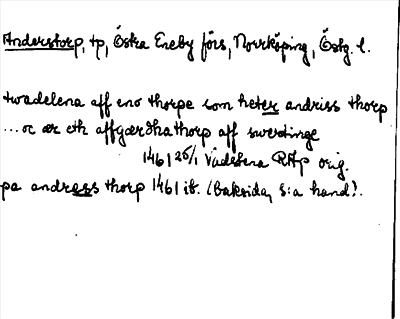 Anderstorp, tp, Östra Eneby förs, Norrköping, Östg. l.
twadelena aff eno thorpe som heter andriss thorp
... oc ær eth affgærdha thorp aff swerdinge
1461 26/1 Vadstena RAp orig.
pa andress thorp 1461 ib. (baksida, s:a hand).